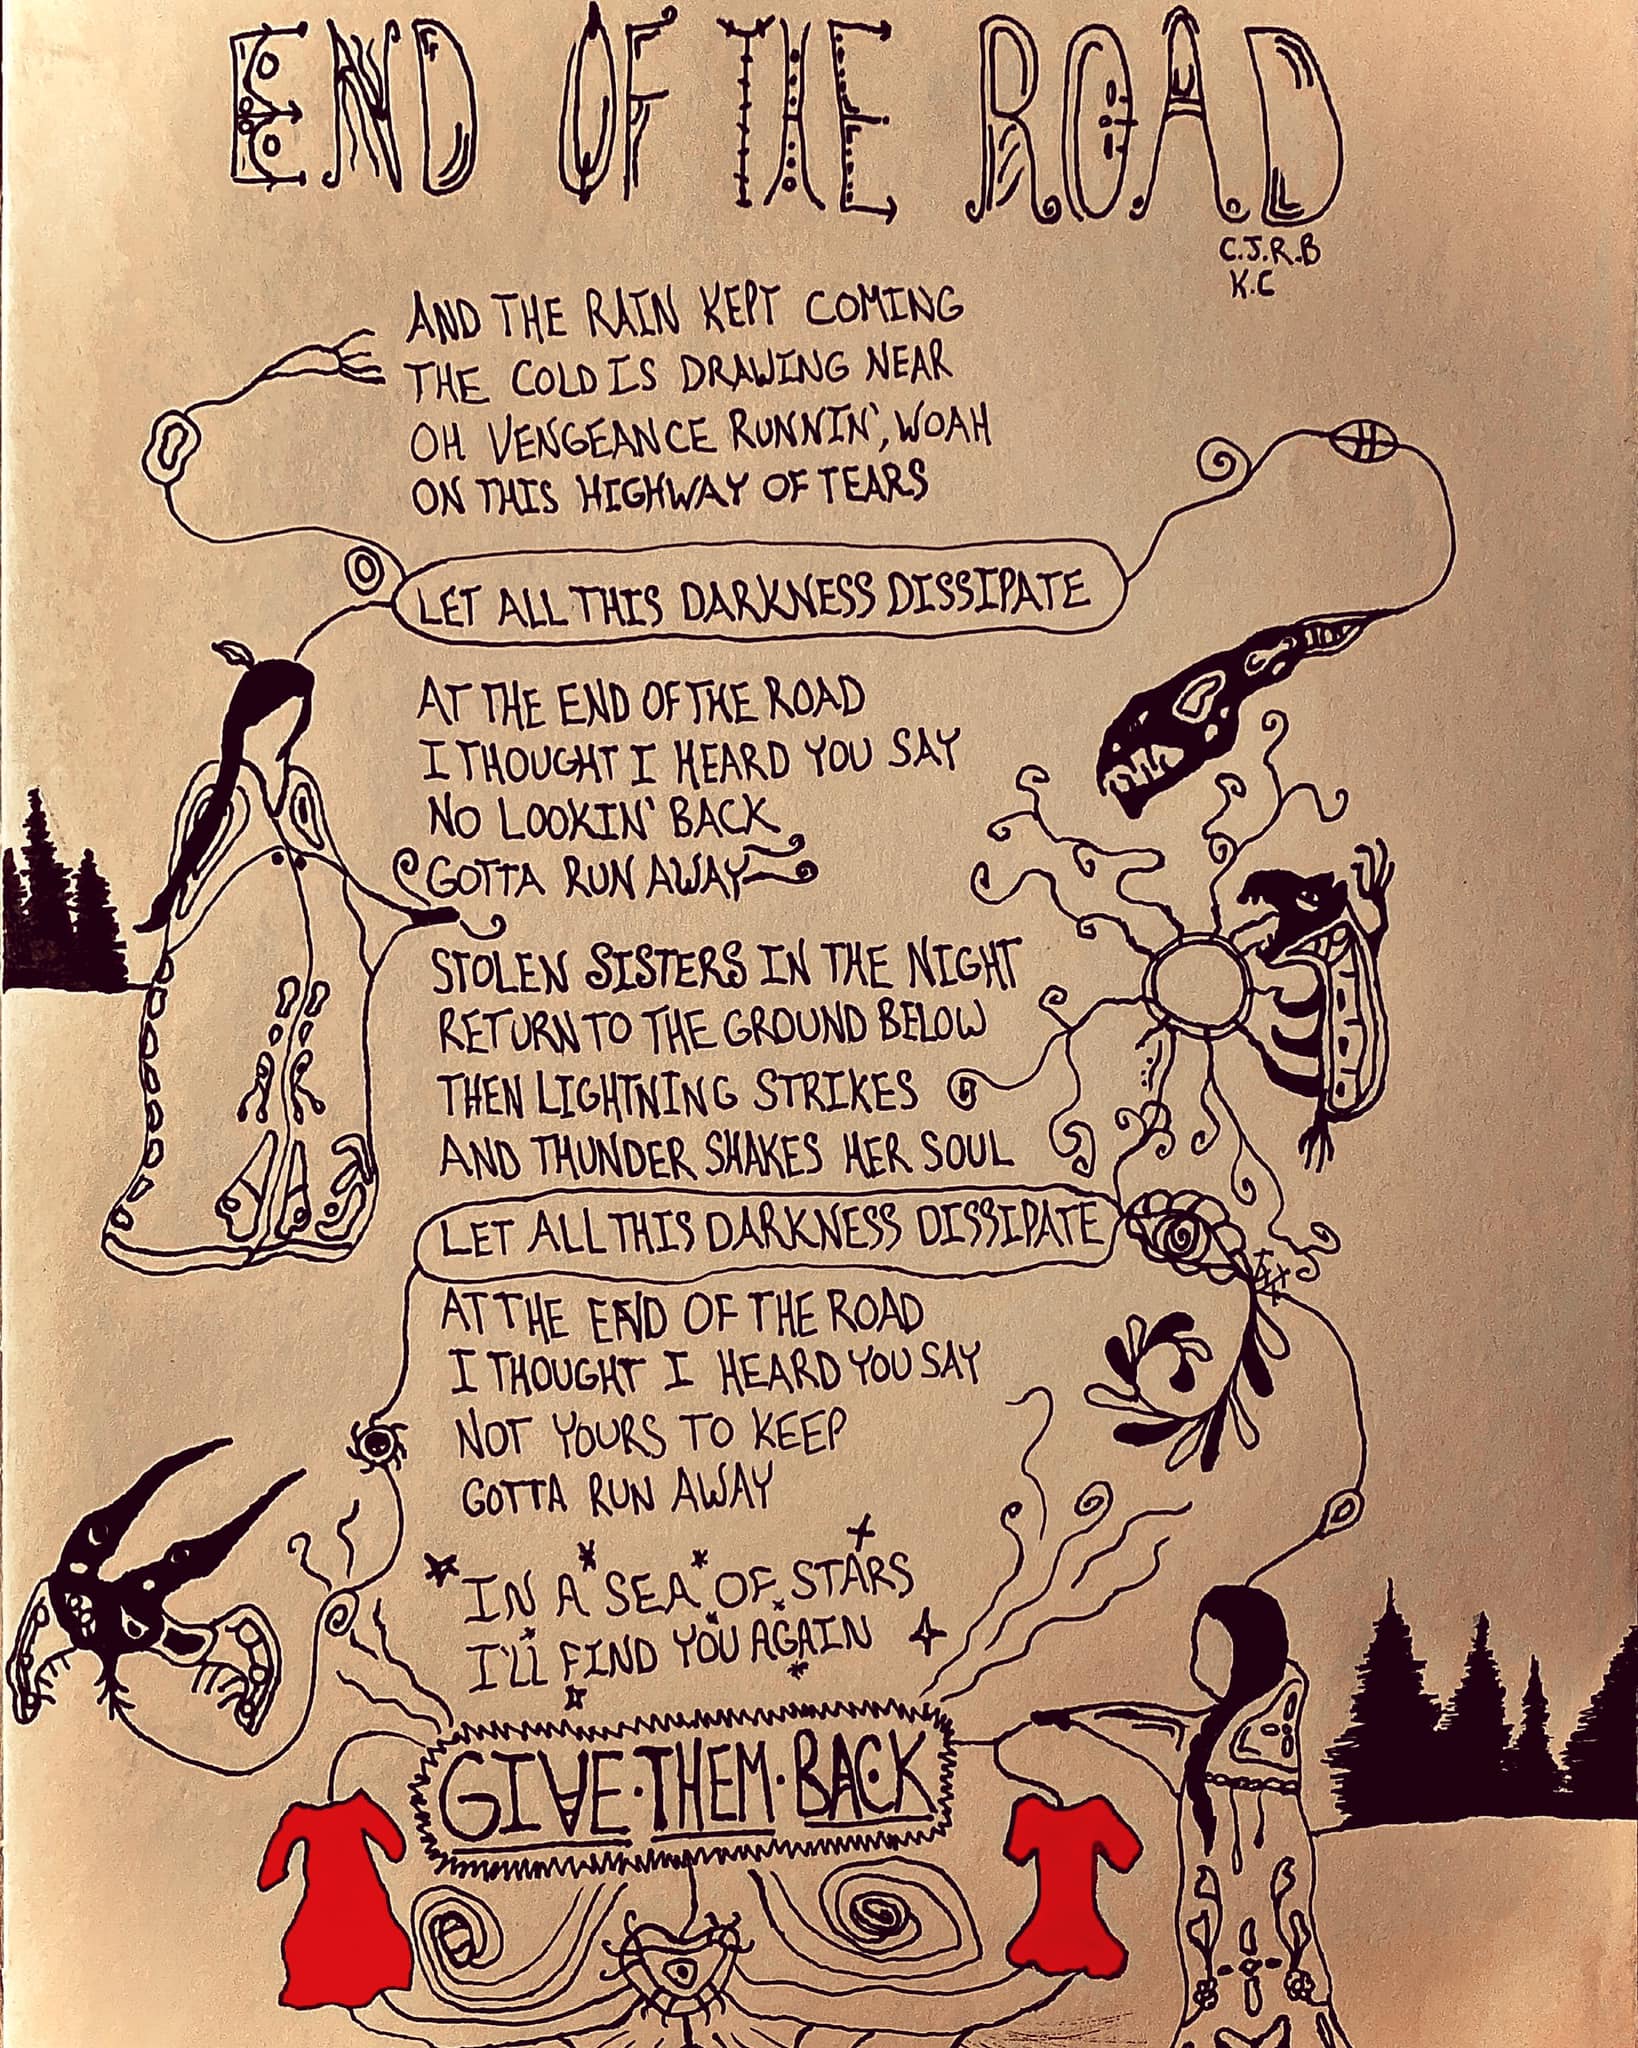 END OF THE ROAD
C.J.R.B
K.C
AND THE RAIN KEPT COMING
THE COLD IS DRAWING NEAR
OH VENGEANCE RUNNIN', WOAH
ON THIS HIGHWAY OF TEARS
LET ALL THIS DARKNESS DISSIPATE
AT THE END OF THE ROAD
I THOUGHT I HEARD YOU SAY
NO LOOKIN' BACK
GOTTA RUN AWAY
STOLEN SISTERS IN THE NIGHT
RETURN TO THE GROUND BELOW
THEN LIGHTNING STRIKES
AND THUNDER SHAKES HER SOUL
LET ALL THIS DARKNESS DISSIPATE
AT THE END OF THE ROAD
I THOUGHT I HEARD YOU SAY
NOT YOURS TO KEEP
GOTTA RUN AWAY
IN A SEA OF STARS
I'LL FIND YOU AGAIN
GIVE·THEM·BACK